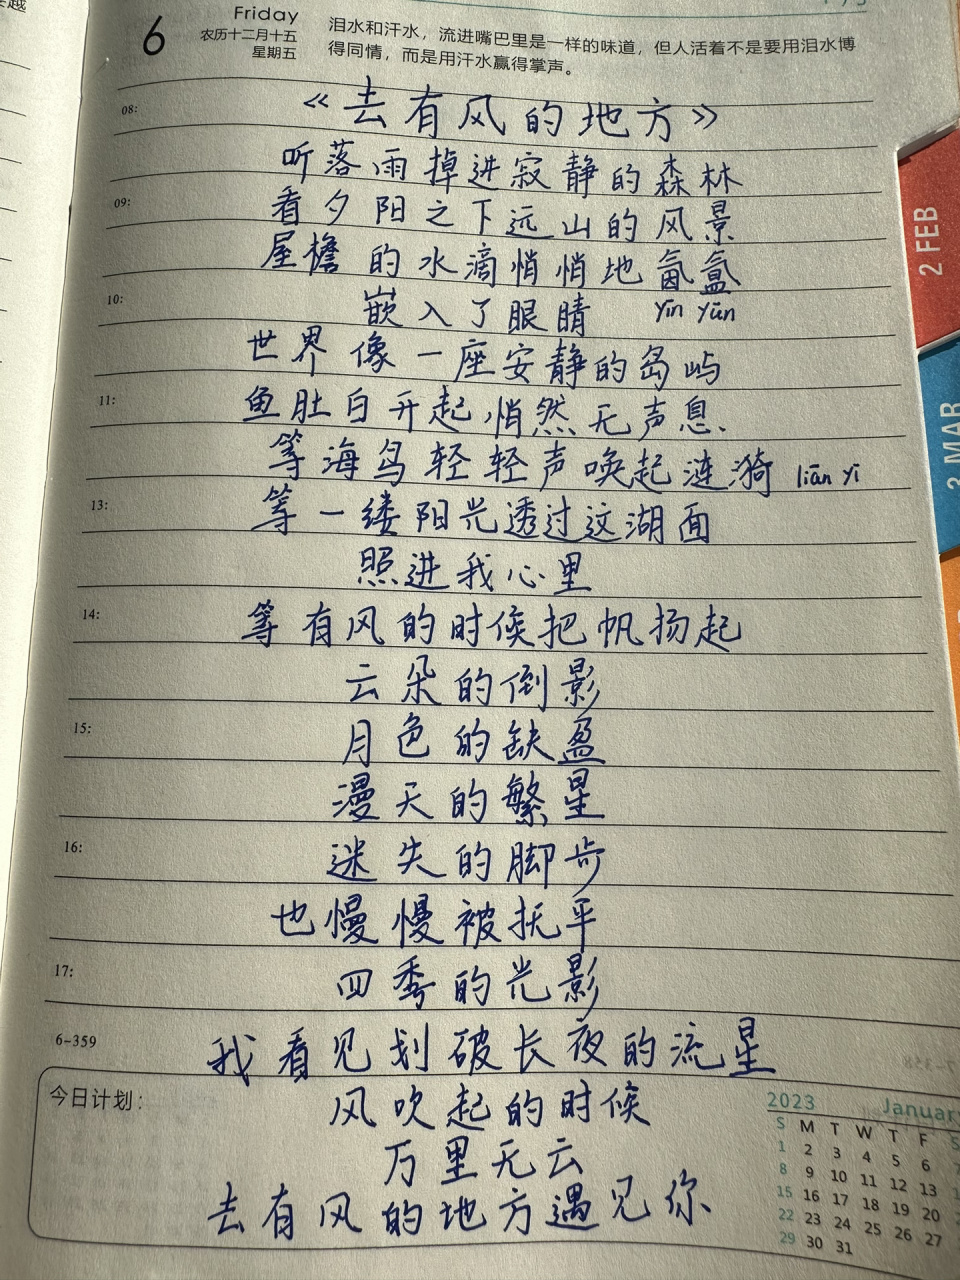 6
Friday
农历十二月十五
星期五
泪水和汗水，流进嘴巴里是一样的味道，但人活着不是要用泪水博
得同情，而是用汗水赢得掌声。
08:
《去有风的地方》
听落雨掉进寂静的森林
09:
看夕阳之下远山的风景
屋檐的水滴悄悄地氤氲
10:
嵌入了眼睛 yīn yūn
世界像一座安静的岛屿
11:
鱼肚白升起,悄然无声息、
等海鸟轻轻声唤起涟漪 lián yī
13:
等一缕阳光透过这湖面
照进我心里
14:
等有风的时候把帆扬起
云朵的倒影
15:
月色的缺盈
漫天的繁星
16:
迷失的脚步
也慢慢被抚平
17:
四季的光影
6-359
我看见划破长夜的流星
今日计划:
风吹起的时候
万里无云
去有风的地方遇见你
2023 January
S M T W T F
1 2 3 4 5 6
8 9 10 11 12 13
15 16 17 18 19 20
22 23 24 25 26 27
29 30 31
2 FEB
3 MAR